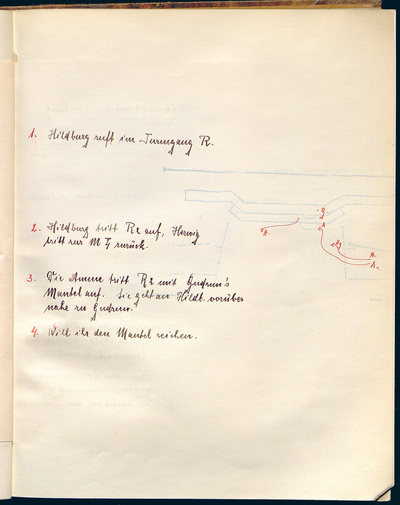 1. Hildburg ruft im Turmgang R.
2. Hildburg tritt R2 auf, Herwig
tritt zur M zurück.
3. Die Amme tritt R2 mit Gudrun's
Mantel auf. Sie geht an Hildb. vorüber
nahe zu Gudrun.
4. Will ihr den Mantel reichen.
G.
A.
H.
H.
H.
A.